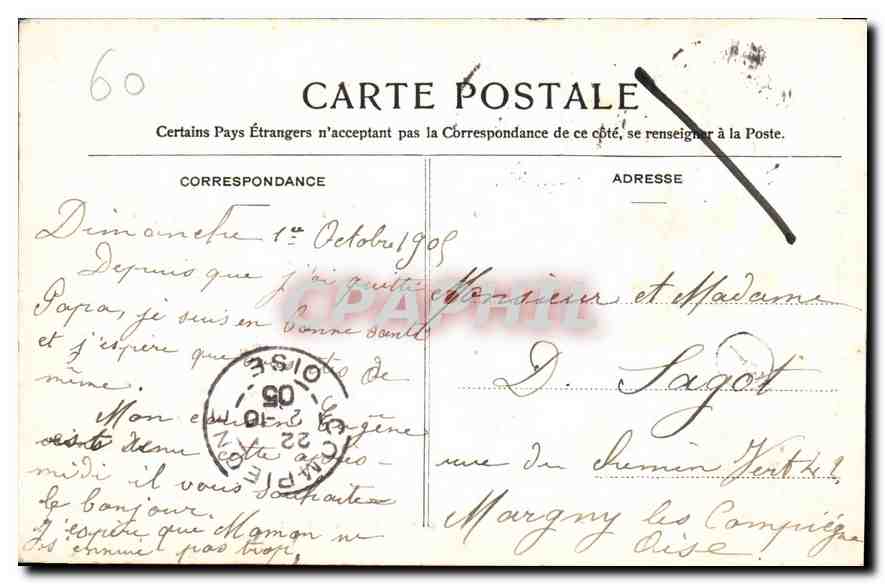 60
CARTE POSTALE
Certains Pays Étrangers n'acceptant pas la Correspondance de ce côté, se renseigner à la Poste.
CORRESPONDANCE
Dimanche 1er Octobre 1905
Depuis que j'ai quitté
Papa, je suis en bonne santé
et j'espère que vous êtes de
même.
Mon cousin Eugène
venu cette après-
midi il vous souhaite
le bonjour.
J'espère que Maman ne
s'ennuie pas trop.
ADRESSE
Monsieur et Madame
D. Sagot
rue du chemin Vert 42
Margny les Compiégne
Oise
COMPIEGNE
22
2-10
05
OISE
CPAPHIL